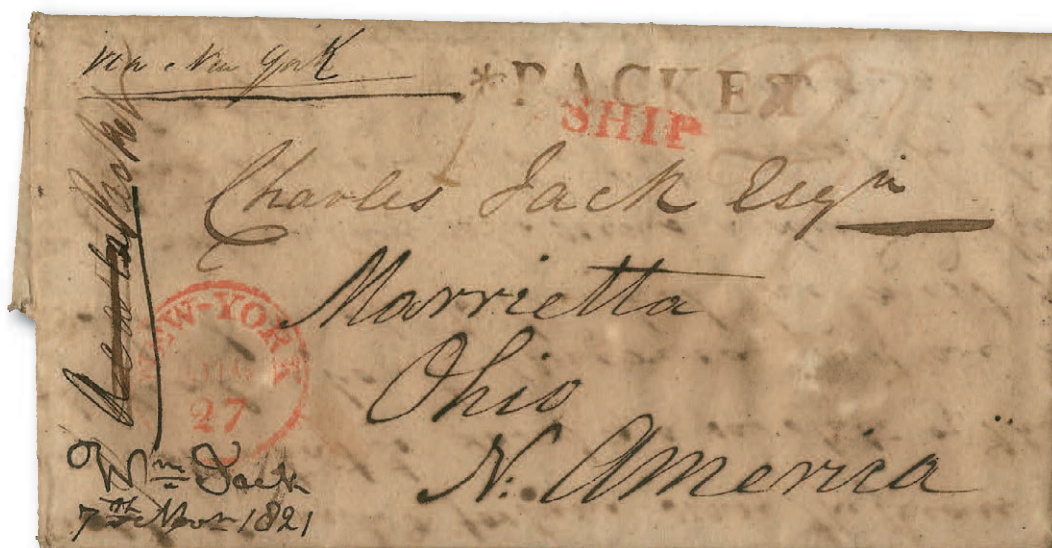 via New York
*PACKET
SHIP
Charles Jack Esqr
Marrietta
Ohio
N. America
NEW-YORK
27
Wm Jack
7th Novr 1821